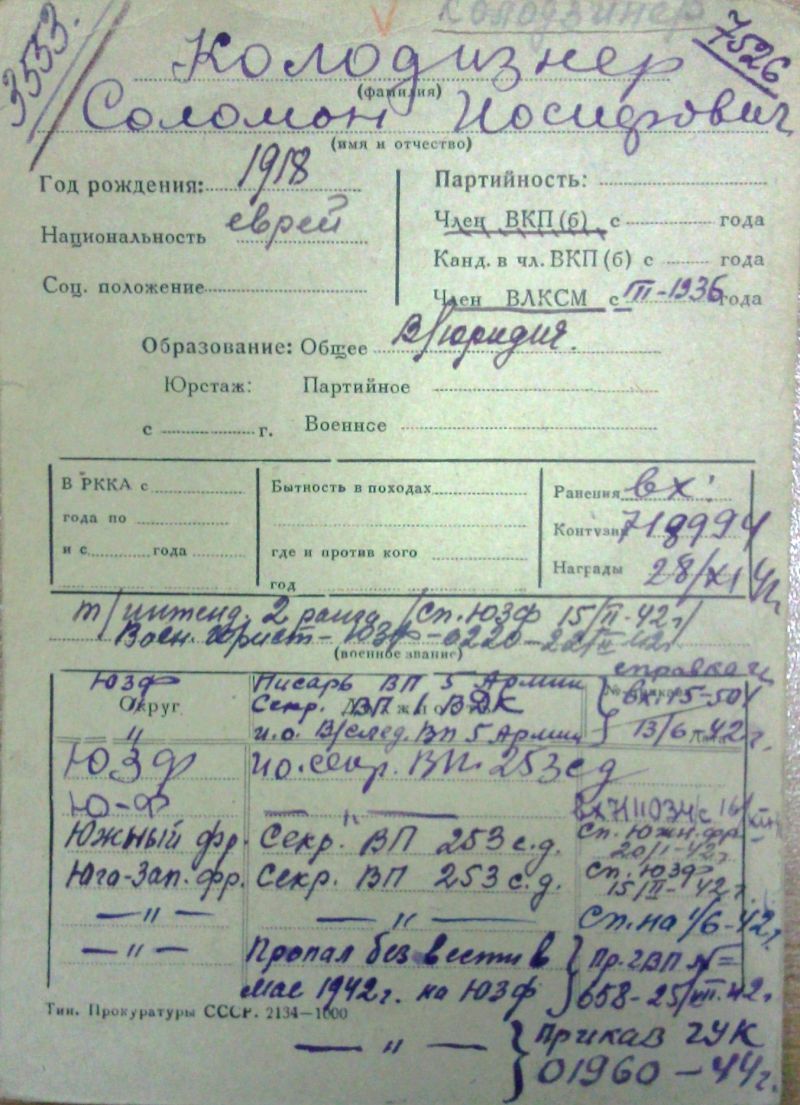 Колодзинер
3553.
7526
Колодизнер
(фамилия)
Соломон Иосифович
(имя и отчество)
Год рождения: 1918
Партийность:
Национальность еврей
Член ВКП (б) с года
Канд. в чл. ВКП (б) с года
Соц. положение
Член ВЛКСМ с III-1936 года
Образование: Общее В/юридич.
Юрстаж: Партийное
с г. Военное
В РККА с
года по
и с года
Бытность в походах
где и против кого
год
Ранения вх:
Контузии
Награды 28/XI
т/интенд. 2 ранга /Сп. ЮЗФ 15/II-42 г/
Воен. Юрист - ЮЗФ - 0220 -
(военное звание)
справка
Округ
ЮЗФ Писарь ВП 5 Армии
" Секр. ВП 1 ВДК вх. 15-501
" и.о. В/след. ВП 5 Армии 13/6 42 г.
ЮЗФ ио. секр. ВП. 253 сд
Ю-Ф — " —
Южный фр. Секр. ВП 253 с.д. Сп. Южн. фр. 20/I-42 г.
Юго-Зап. фр. Секр. ВП 253 с.д. Сп. ЮЗФ 15/II-42 г.
— " — — " — Сп. на 1/6-42 г.
— " — Пропал без вести в Пр. ГВП №=
мае 1942 г. на ЮЗФ 658-25/VII-42 г
Тип. Прокуратуры СССР. 2134—1000
— " — Приказ ГУК
01960 - 44 г.